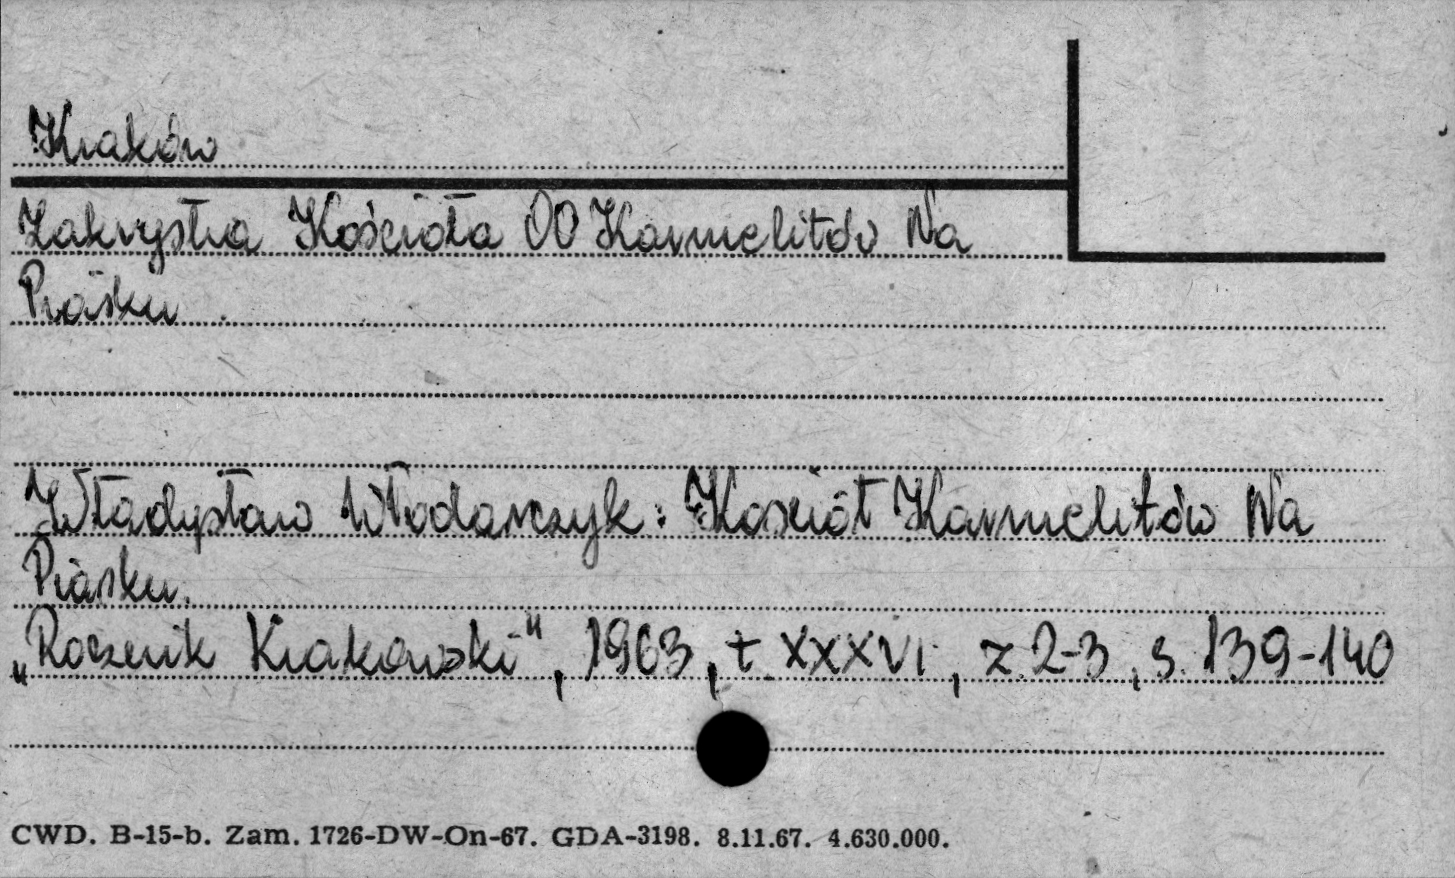 Kraków
Zakrystia Kościoła OO Karmelitów Na
Piasku.
Władysław Włodarczyk: Kościół Karmelitów Na
Piasku.
„Rocznik Krakowski", 1963, t. XXXVI, z. 2-3, s. 139-140
CWD. B-15-b. Zam. 1726-DW-On-67. GDA-3198. 8.11.67. 4.630.000.